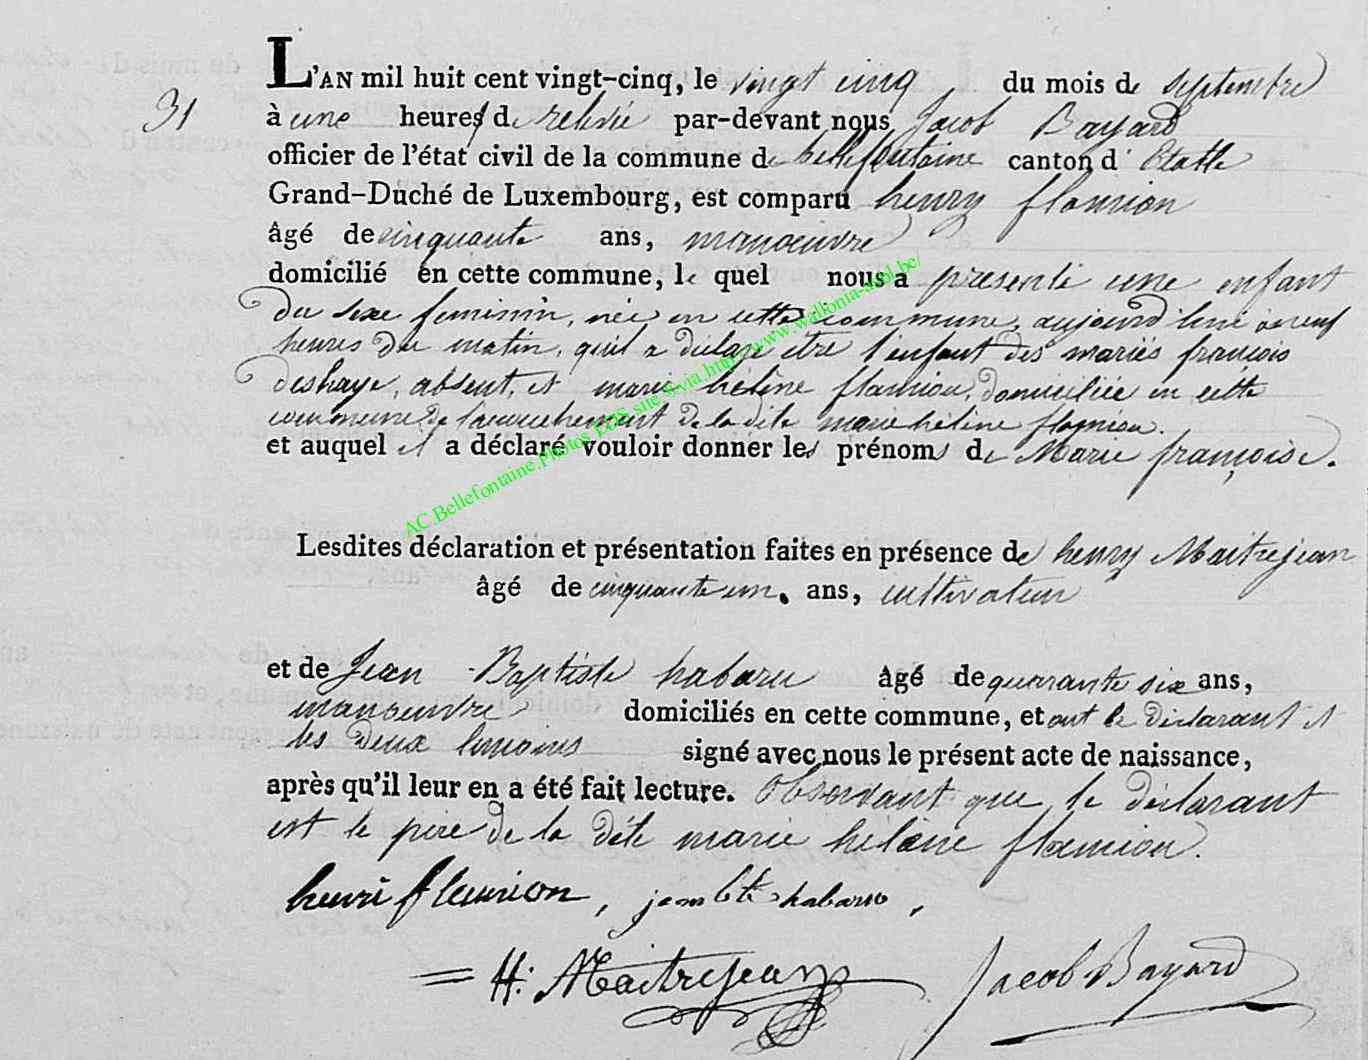 31
L'AN mil huit cent vingt-cinq, le vingt cinq du mois de septembre
à une heures de relevée par-devant nous Jacob Bayard
officier de l'état civil de la commune de bellefontaine canton d'Etalle
Grand-Duché de Luxembourg, est comparu henry flamion
âgé de cinquante ans, manoeuvre
domicilié en cette commune, le quel nous a presenté une enfant
du sexe feminin, née en cette commune, aujourd'hui à neuf
heures du matin, qu'il a declaré être l'enfant des mariés françois
deshaye, absent, et marie hélène flamion, domiciliée en cette
commune, de l'accouchement de la dite marie hélène flamion.
et auquel il a déclaré vouloir donner les prénoms de Marie françoise.
Lesdites déclaration et présentation faites en présence de henry Maitrejean
âgé de cinquante un. ans, cultivateur
et de Jean Baptiste habaru âgé de quarante six ans,
manoeuvre domiciliés en cette commune, et ont le déclarant et
les deux temoins signé avec nous le présent acte de naissance,
après qu'il leur en a été fait lecture. Observant que le déclarant
est le père de la dite marie hélène flamion.
henri flamion, jean bte habaru,
H: Maitrejean Jacob Bayard
AC.Bellefontaine.Photos EOS site S-via.http://www.wallonia-asbl.be/